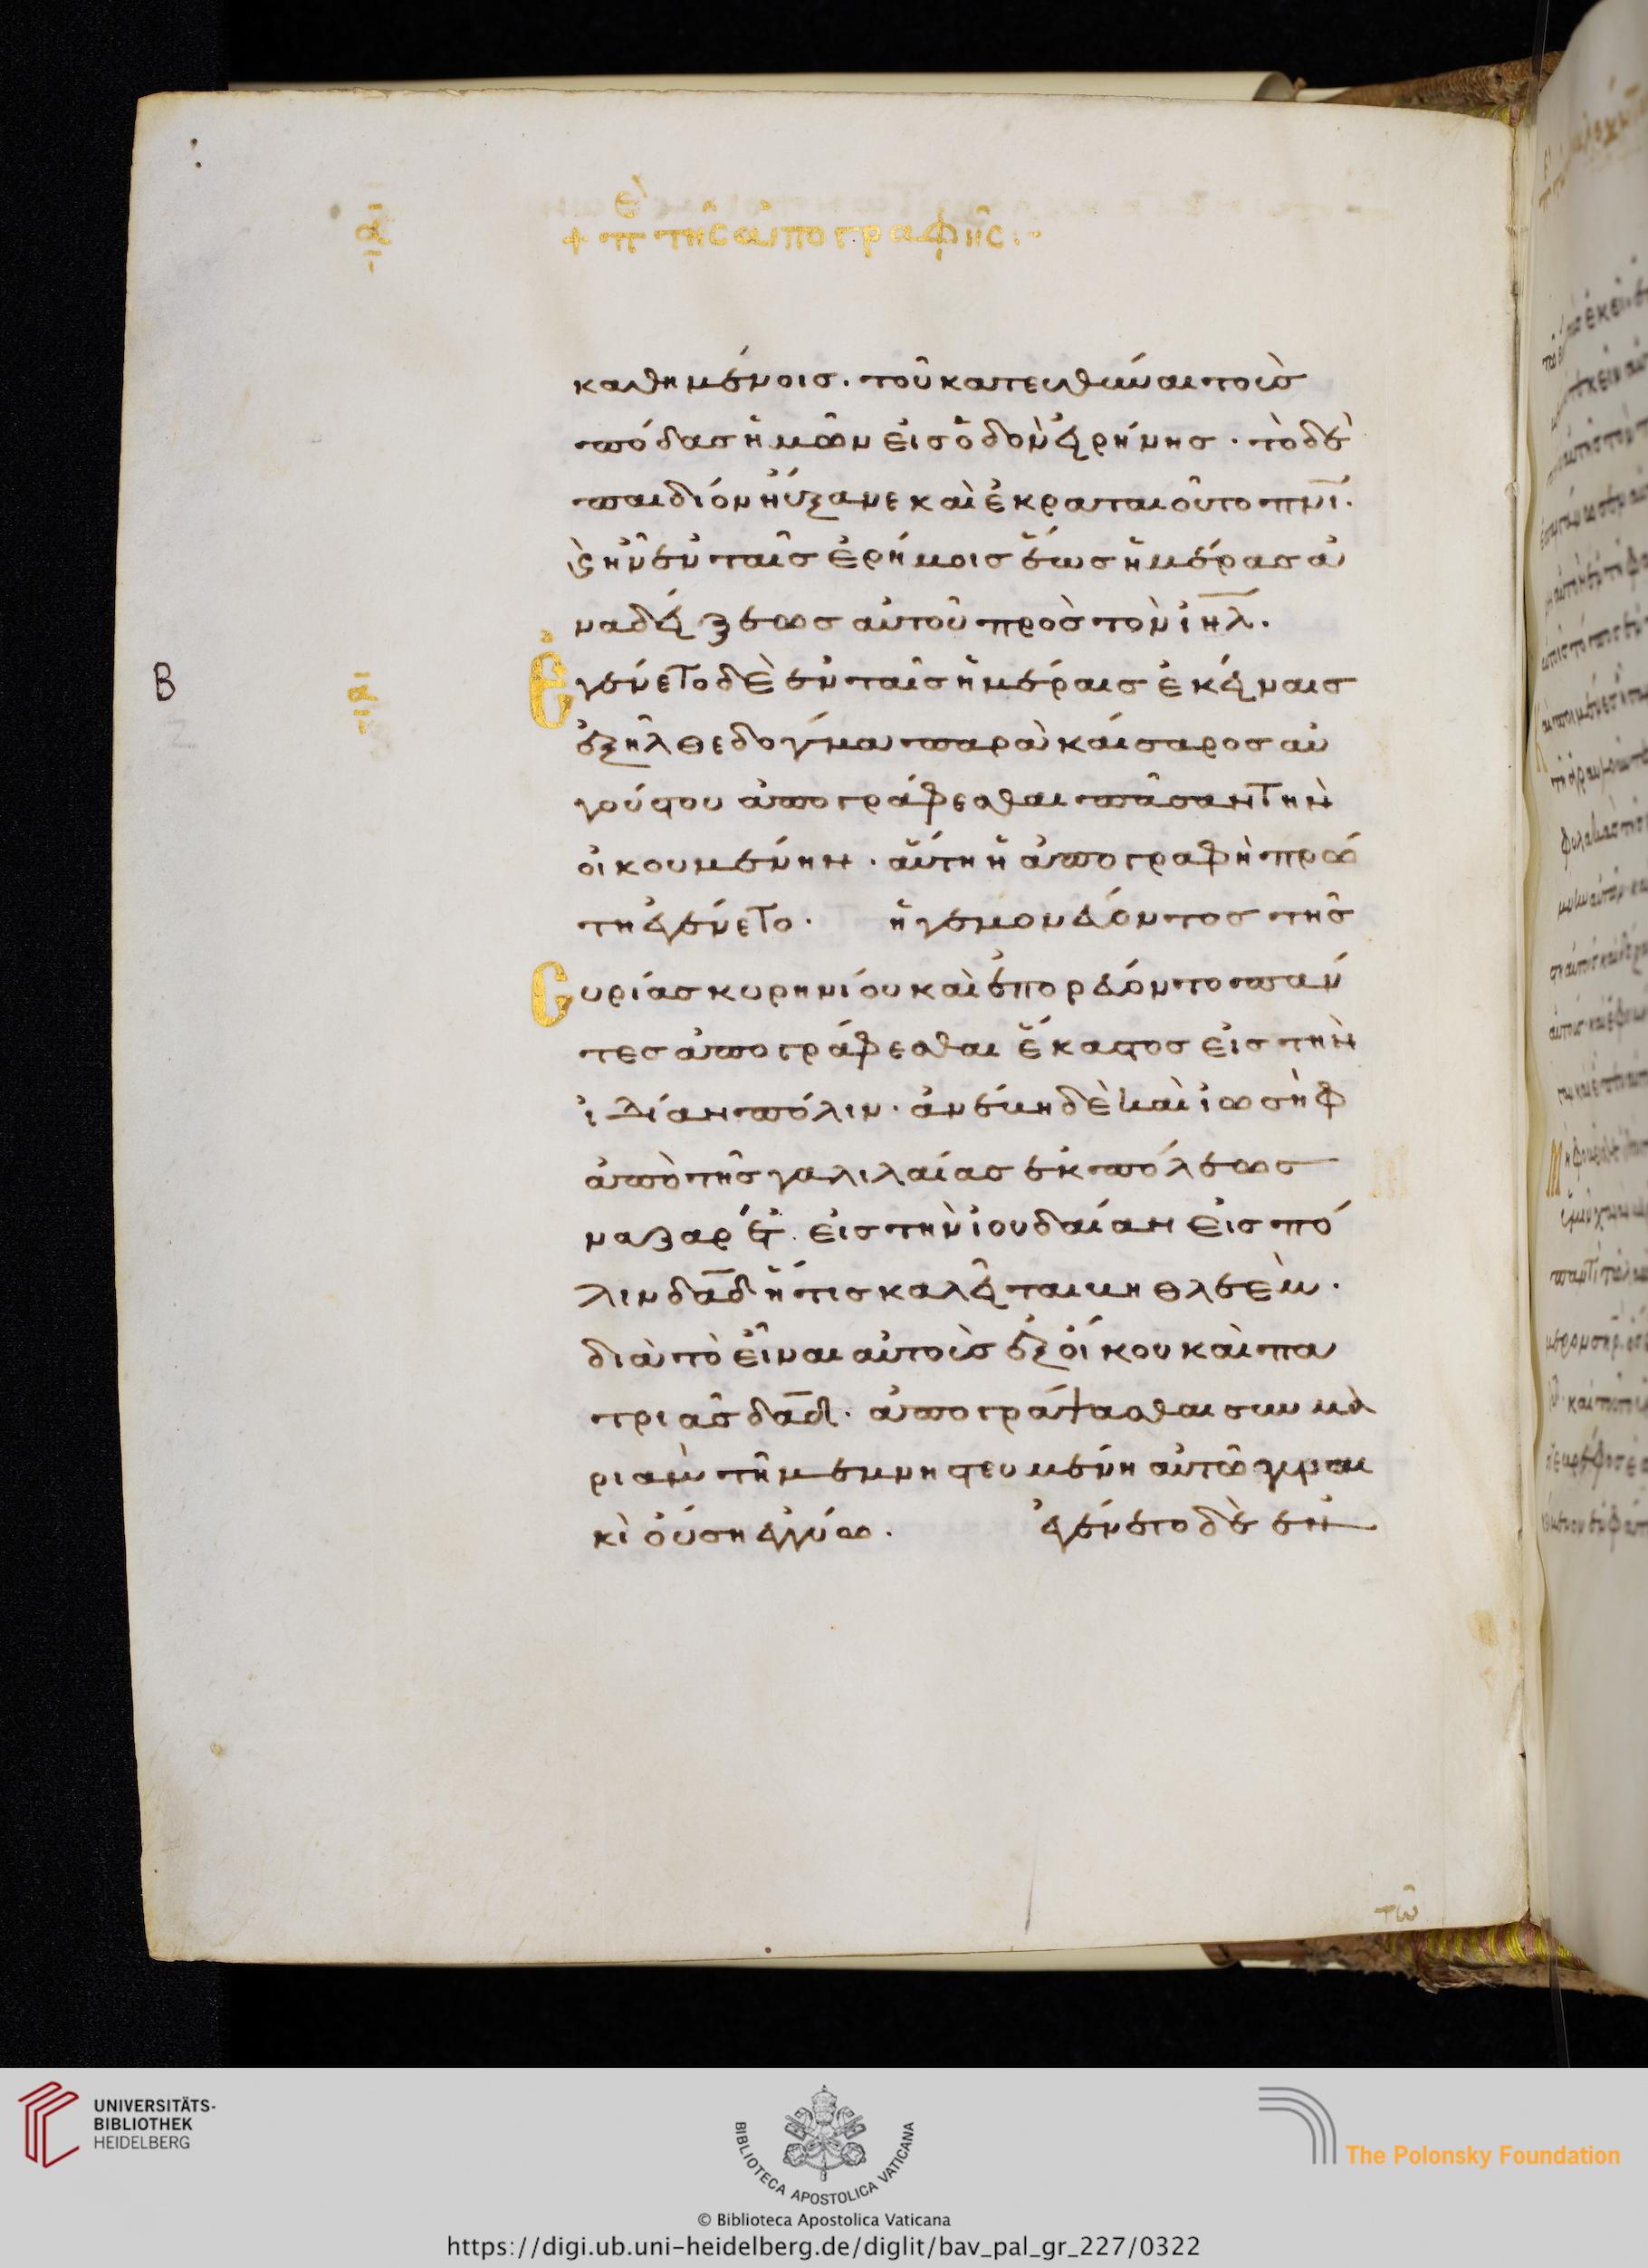 α
+ περὶ τῆς ἀπογραφῆς :-
καθημένοις. τοῦ κατευθύναι τοὺς
πόδας ἡμῶν εἰς ὁδὸν εἰρήνης · τὸ δὲ
παιδίον ηὔξανε καὶ ἐκραταιοῦτο πνι.
καὶ ἦν ἐν ταῖς ἐρήμοις ἕως ἡμέρας ἀ
ναδείξεως αὐτοῦ πρὸς τὸν ἰηλ.
Ἐγένετο δὲ ἐν ταῖς ἡμέραις ἐκείναις
ἐξῆλθε δόγμα παρὰ καίσαρος αὐ
γούστου ἀπογράφεσθαι πᾶσαν τὴν
οἰκουμένην · αὕτη ἡ ἀπογραφὴ πρώ
τη ἐγένετο · ἡγεμονεύοντος τῆς
Συρίας κυρηνίου καὶ ἐπορεύοντο πάν
τες ἀπογράφεσθαι ἕκαστος εἰς τὴν
ἰδίαν πόλιν · ἀνέβη δὲ καὶ ἰωσὴφ
ἀπὸ τῆς γαλιλαίας ἐκ πόλεως
ναζαρέτ. εἰς τὴν ἰουδαίαν εἰς πό
λιν δαδ ἥτις καλεῖται βηθλεὲμ ·
διὰ τὸ εἶναι αὐτοὺς ἐξ οἴκου καὶ πα
τριᾶς δαδ · ἀπογράψασθαι συν μα
ριὰμ τῆ μεμνηστευμένη αὐτῶ γυναι
κὶ οὔση ἐγγύω · ἐγένετο δὲ ἐν
B
τῶ
UNIVERSITÄTS-
BIBLIOTHEK
HEIDELBERG
BIBLIOTECA APOSTOLICA VATICANA
The Polonsky Foundation
© Biblioteca Apostolica Vaticana
https://digi.ub.uni-heidelberg.de/diglit/bav_pal_gr_227/0322